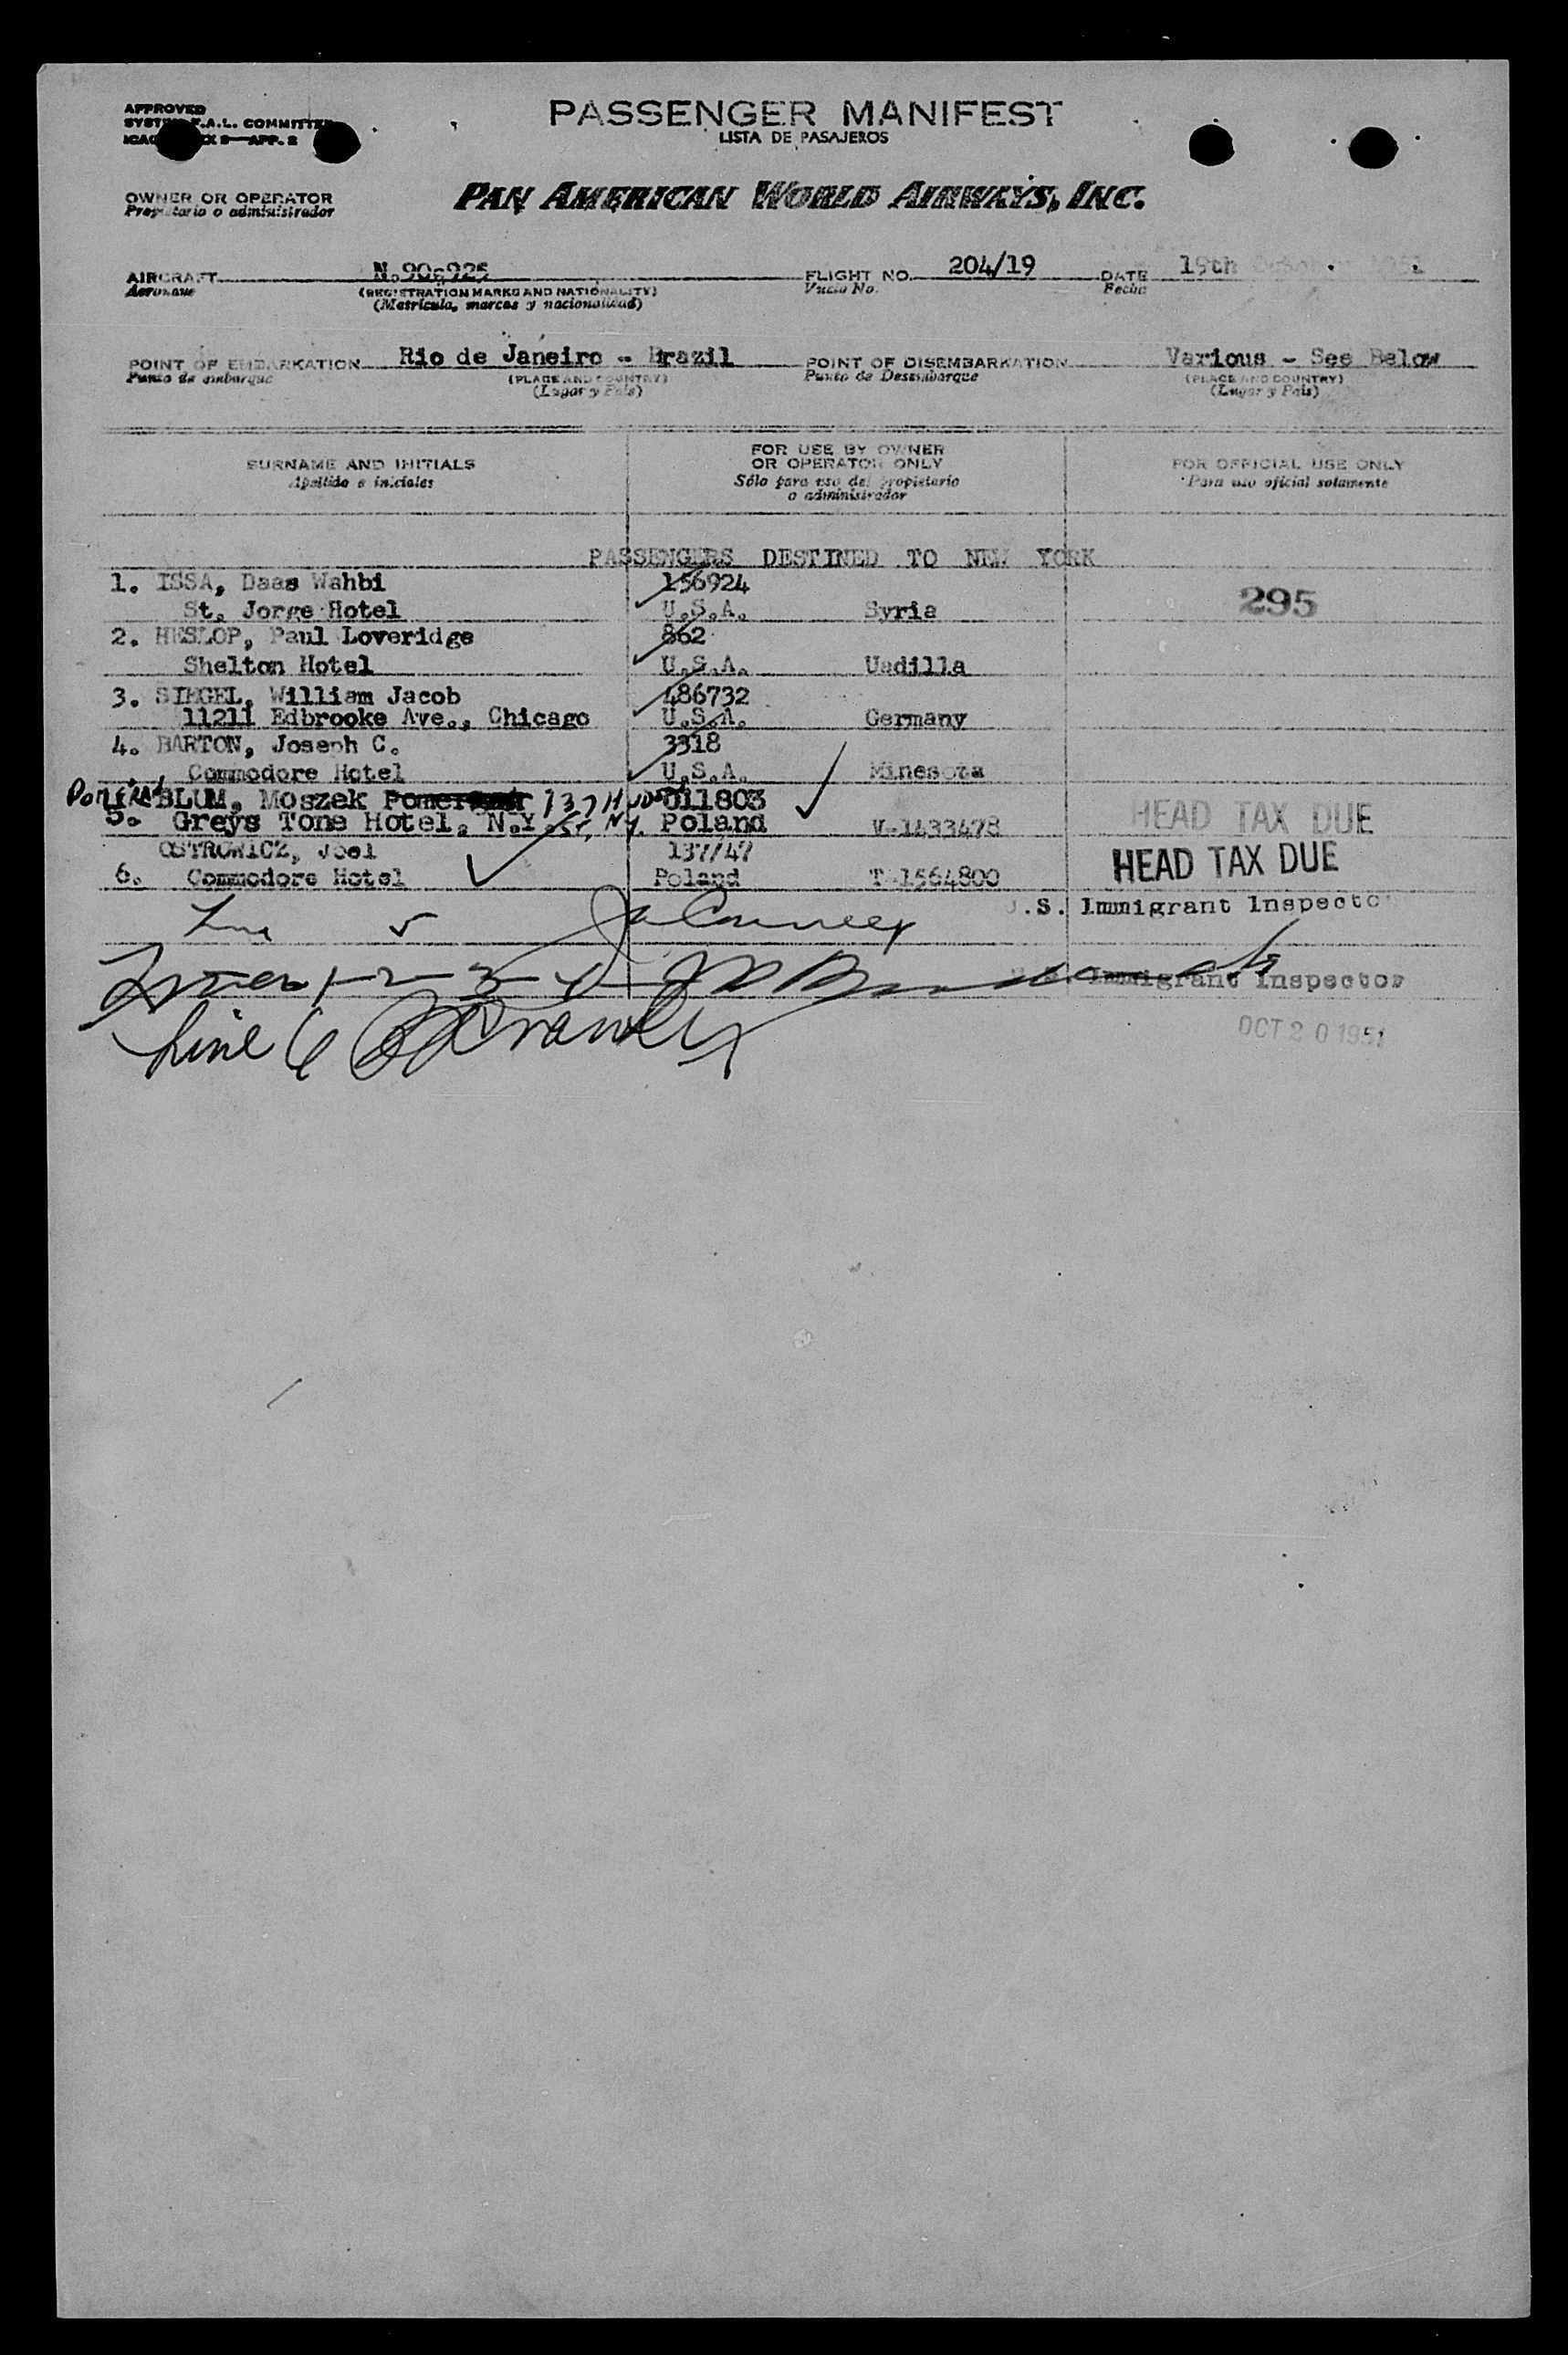 APPROVED
PASSENGER MANIFEST
F.A.L. COMMITTEE
LISTA DE PASAJEROS
APP. 2
OWNER OR OPERATOR
Propietario o administrador
PAN AMERICAN WORLD AIRWAYS, INC.
AIRCRAFT N.90-925 FLIGHT NO. 204/19 DATE 19th
Aeronave (REGISTRATION MARKS AND NATIONALITY) Vuelo No. Fecha
(Matrícula, marcas y nacionalidad)
POINT OF EMBARKATION Rio de Janeiro - Brazil POINT OF DISEMBARKATION Various - See Below
Punto de embarque (PLACE AND COUNTRY) Punto de Desembarque (PLACE AND COUNTRY)
(Lugar y País) (Lugar y País)
SURNAME AND INITIALS FOR USE BY OWNER OR OPERATOR ONLY FOR OFFICIAL USE ONLY
Apellido e iniciales Sólo para uso del propietario o administrador Para uso oficial solamente
PASSENGERS DESTINED TO NEW YORK
1. ISSA, Daas Wahbi 156924
St. Jorge Hotel U.S.A. Syria 295
2. HESLOP, Paul Loveridge 862
Shelton Hotel U.S.A. Uadilla
3. SIEGEL, William Jacob 486732
11211 Edbrooke Ave., Chicago U.S.A. Germany
4. BARTON, Joseph C. 3318
Commodore Hotel U.S.A. Minesota
BLUM, Moszek 137 011803 HEAD TAX DUE
5. Greys Tone Hotel. N.Y. N.Y. Poland V-1433478
OSTROWICZ, Joel 137/47 HEAD TAX DUE
6. Commodore Hotel Poland T-1564800
Line 5 U.S. Immigrant Inspector
Lines 1-2-3-4 Immigrant Inspector
Line 6
OCT 20 1951